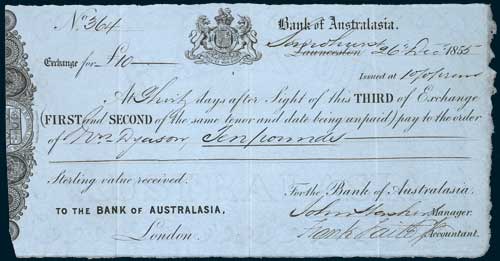 No. 364
Bank of Australasia.
Sandhurst
Launceston 26 Decr 1855
Exchange for £10
Issued at
At Thirty days after Sight of this THIRD of Exchange
(FIRST and SECOND of the same tenor and date being unpaid) pay to the order
of Wm Dyason, Ten pounds
Sterling value received.
For the Bank of Australasia.
TO THE BANK OF AUSTRALASIA,
John Manager.
London.
Frank Accountant.